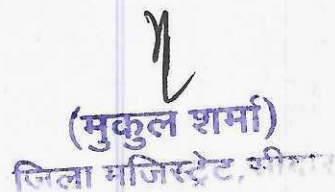 (मुकुल शर्मा)
जिला मजिस्ट्रेट,